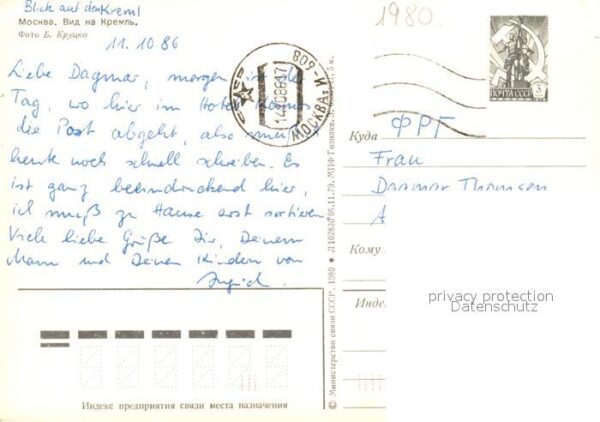 Blick auf den Kreml
Москва. Вид на Кремль.
Фото Б. Круцко
11.10.86
1980
Liebe Dagmar, morgen ist der
Tag, wo hier im Hotel Kosmos
die Post abgeht, also muß ich
heute noch schnell schreiben. Es
ist ganz beeindruckend hier,
ich muß zu Hause erst sortieren
Viele liebe Grüße Dir, Deinem
Mann und Deinen Kindern von
Ingrid.
СССР
14108617
МОСКВА
И-809
ПОЧТА СССР
3
Куда ФРГ
Frau
Dagmar
Кому
Индек
privacy protection
Datenschutz
© Министерство связи СССР, 1980
05.11.79. МПФ Гознака.
Индекс предприятия связи места назначения